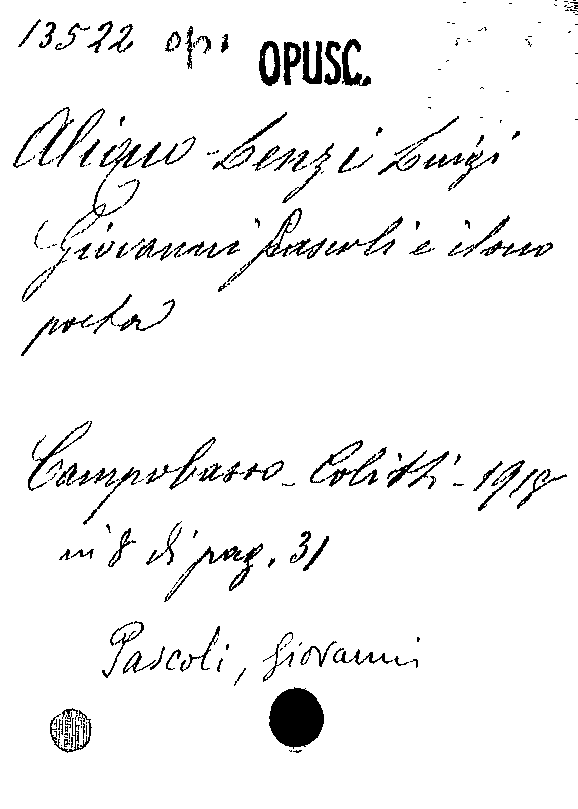 13522 op.
OPUSC.
Aliquo-Lenzi Luigi
Giovanni Pascoli e il suo
poeta
Campobasso - Colitti - 1918
in 8 di pag. 31
Pascoli, Giovanni